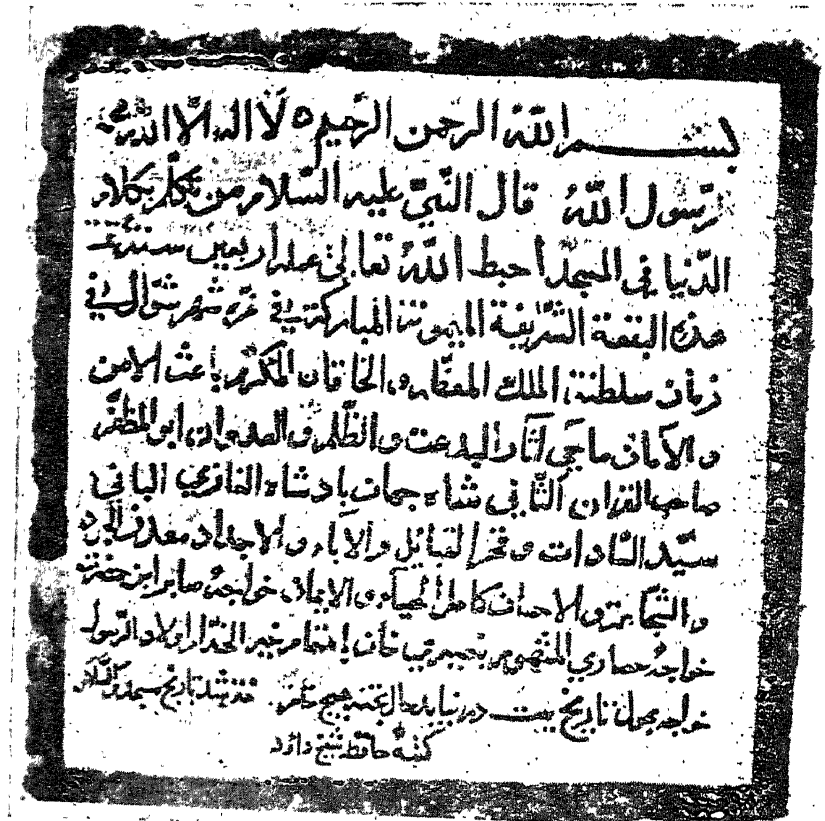 بسم الله الرحمن الرحيم ه لا اله الا الله محمد
رسول الله قال النبي عليه السلام من تكلم بكلام
الدنيا في المسجد احبط الله تعالى عمله اربعين سنة
هذه البقعة الشريفة الميمونة المباركة في غره شهر شوال في
زمان سلطنة الملك المعظم و الخاقان المكرم باعث الامن
و الامان ماحي آثار البدعت و الظلم و العدوان ابو المظفر
صاحب القران الثاني شاه جهان بادشاه الغازي الباني
سيد السادات و فخر القبائل و الآباء و الاجداد معدن
و النجابة و الاحسان كامل الحياء و الايمان خواجه صابر ابن حضرت
خواجه حصاري خان خير اولاد الرسول
خواجه تاريخ بيت
كتبه حافظ شيخ داؤد